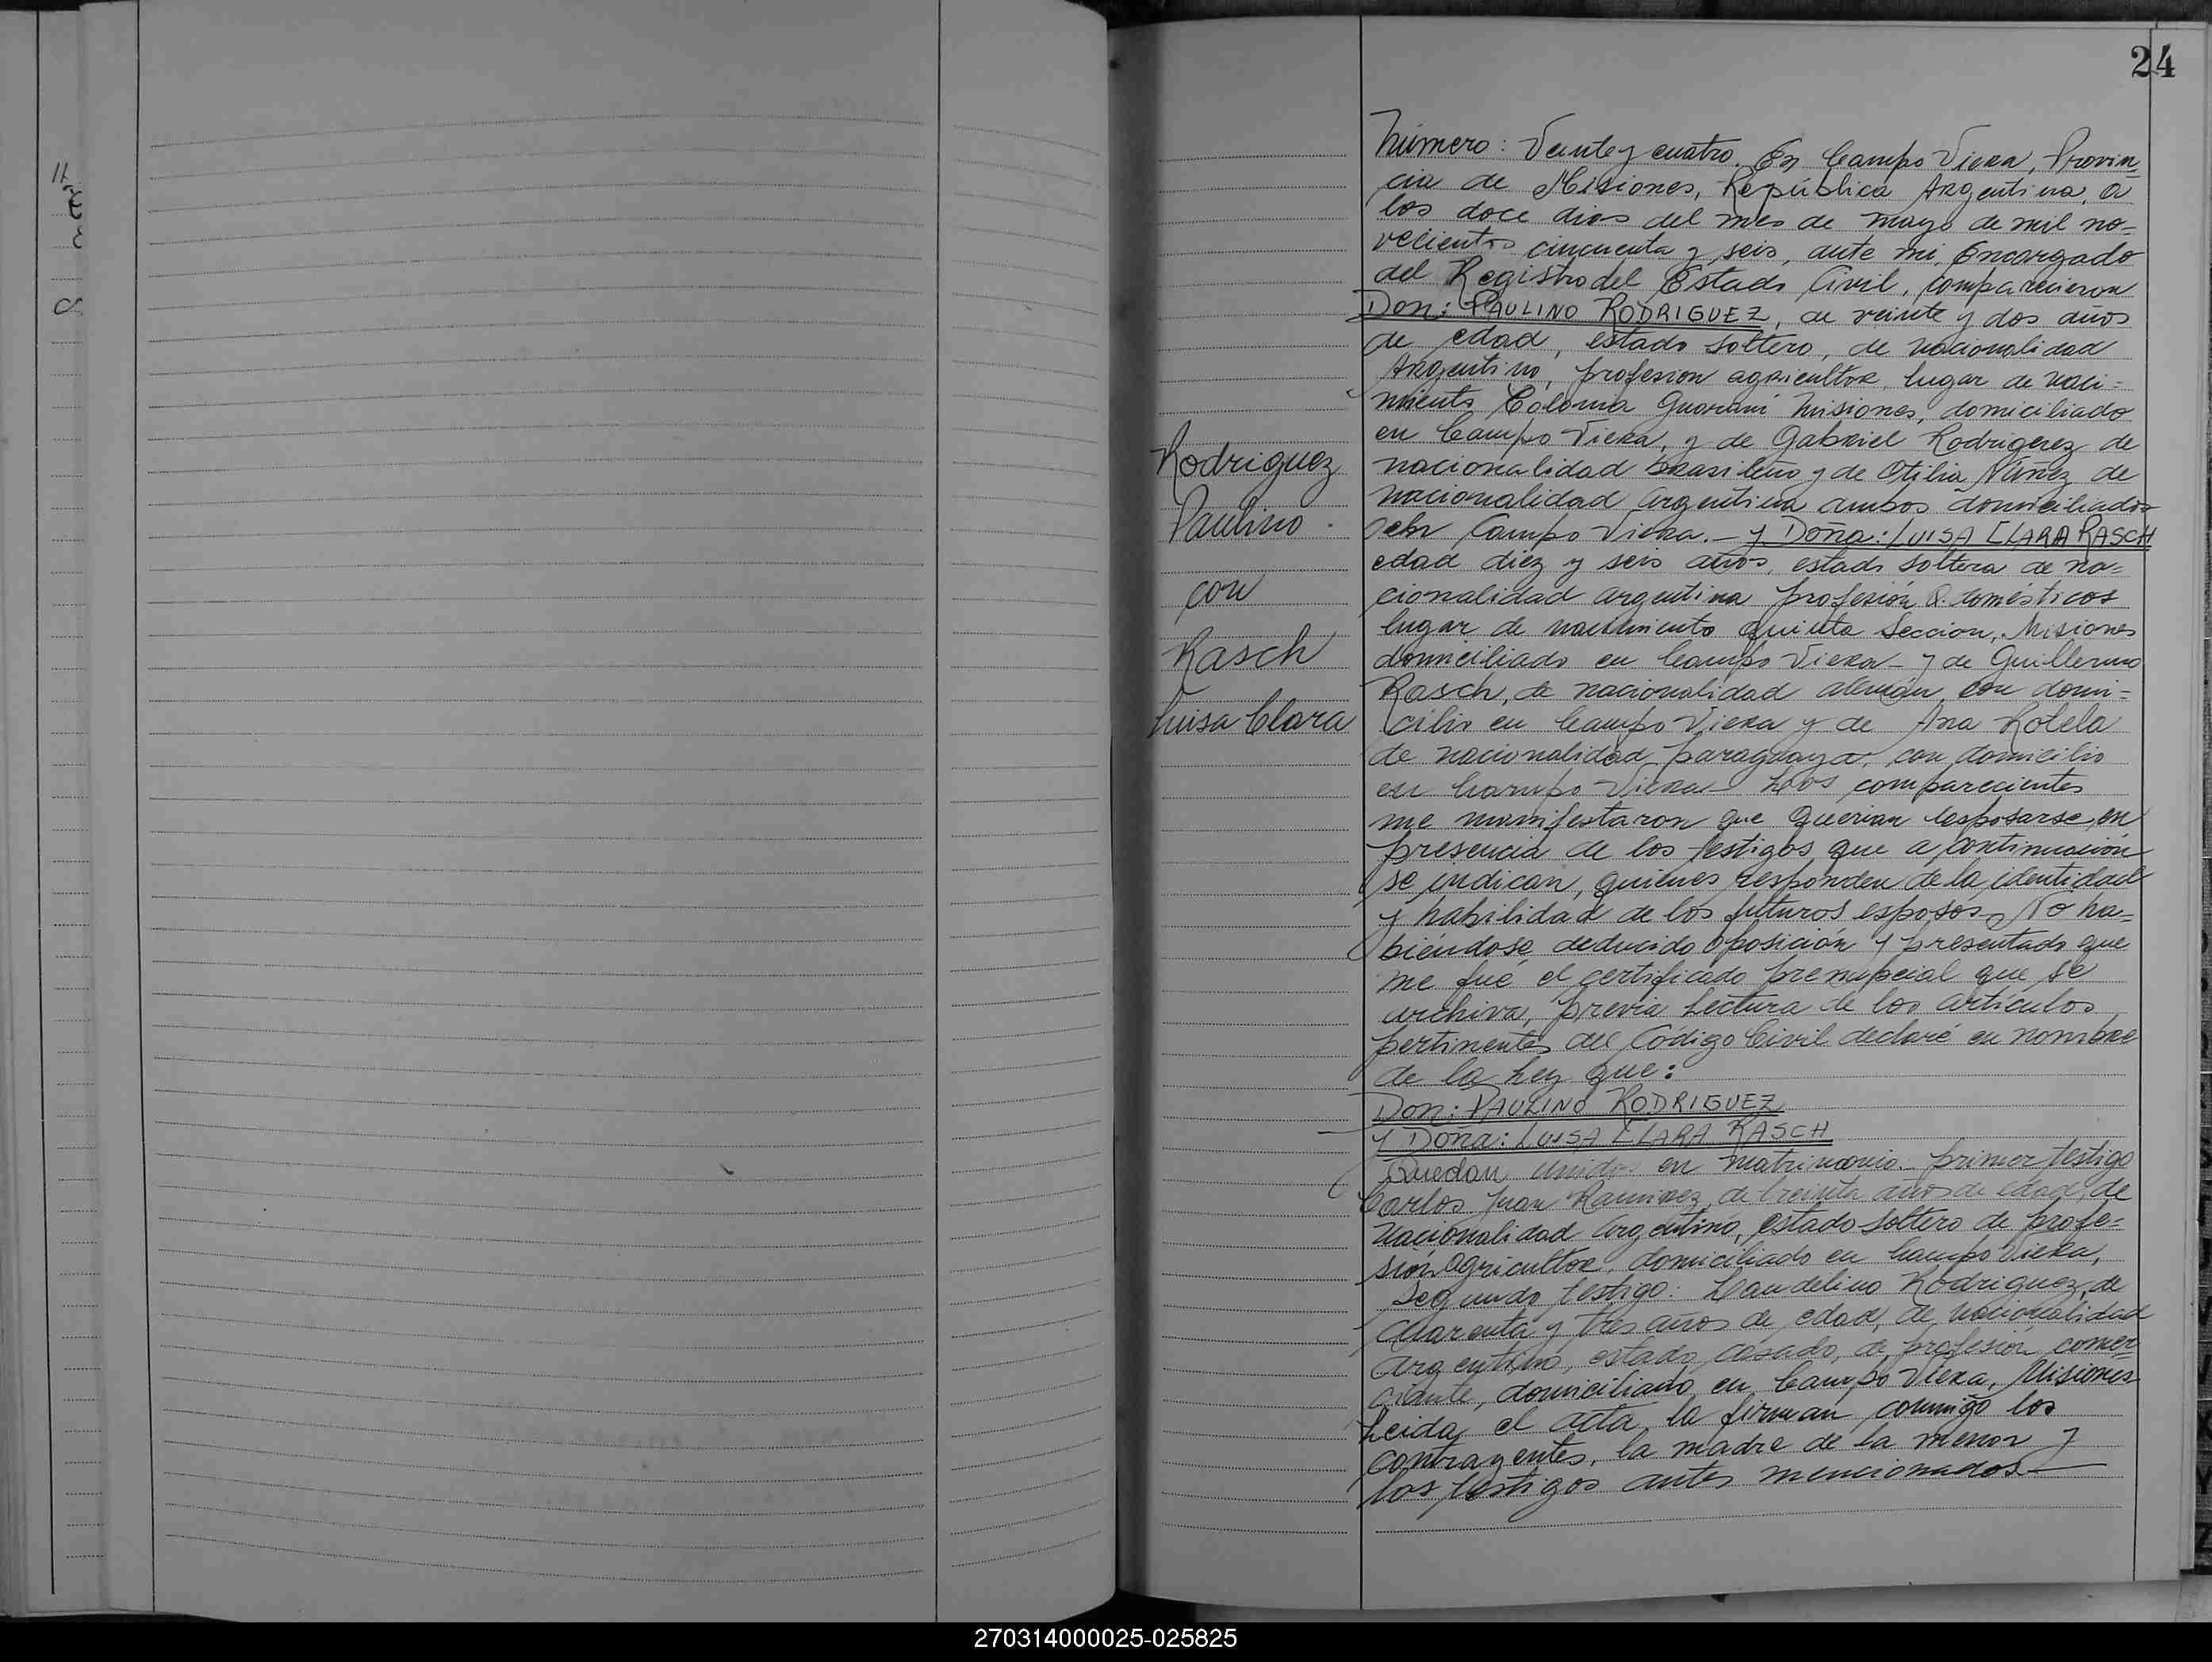 24
Número: Veinte y cuatro. En Campo Viera, Provin
cia de Misiones, República Argentina, a
los doce dias del mes de mayo de mil no=
vecientos cincuenta y seis, ante mi, Encargado
del Registro del Estado Civil, comparecieron
Don: PAULINO RODRIGUEZ, de veinte y dos años
de edad, estado soltero, de nacionalidad
Argentino, profesion agricultor, lugar de naci=
miento Colonia Guarani Misiones, domiciliado
en Campo Viera, y de Gabriel Rodrigerez de
nacionalidad brasileño y de Otilia Núnez de
nacionalidad argentina ambos domiciliados
en Campo Viera.- y Doña: LUISA CLARA RASCH
edad diez y seis años, estado soltera de na=
cionalidad argentina profesión Q. domésticos
lugar de nacimiento quinta Seccion, Misiones
domiciliado en Campo Viera - y de Guillermo
Rasch, de nacionalidad alemán, con domi=
cilio en Campo Viera y de Ana Rotela
de nacionalidad paraguaya, con domicilio
en Campo Viera - Los comparecientes
me manifestaron que querian esposarse, en
presencia de los testigos que a continuación
se indican, quienes responden de la identidad
y habilidad de los futuros esposos. No ha=
biéndose deducido oposición y presentado que
me fué el certificado prenupcial que se
archiva, previa lectura de los artículos
pertinentes del Código Civil declaré en nombre
de la Ley que:
Don: PAULINO RODRIGUEZ
y Doña: LUISA CLARA RASCH
Quedan unidos en matrimonio.- primer testigo
Carlos Juan Ramirez, de treinta años de edad, de
nacionalidad argentino, estado soltero de profe=
sión agricultor, domiciliado en Campo Viera,
Segundo testigo: Candelino Rodriguez, de
cuarenta y tres años de edad, de nacionalidad
argentino, estado casado, de profesión comer=
ciante, domiciliado en Campo Viera, Misiones
Leida el acta, la firman conmigo los
contrayentes, la madre de la menor y
los testigos antes mencionados -
Rodriguez
Paulino
con
Rasch
Luisa Clara
270314000025-025825